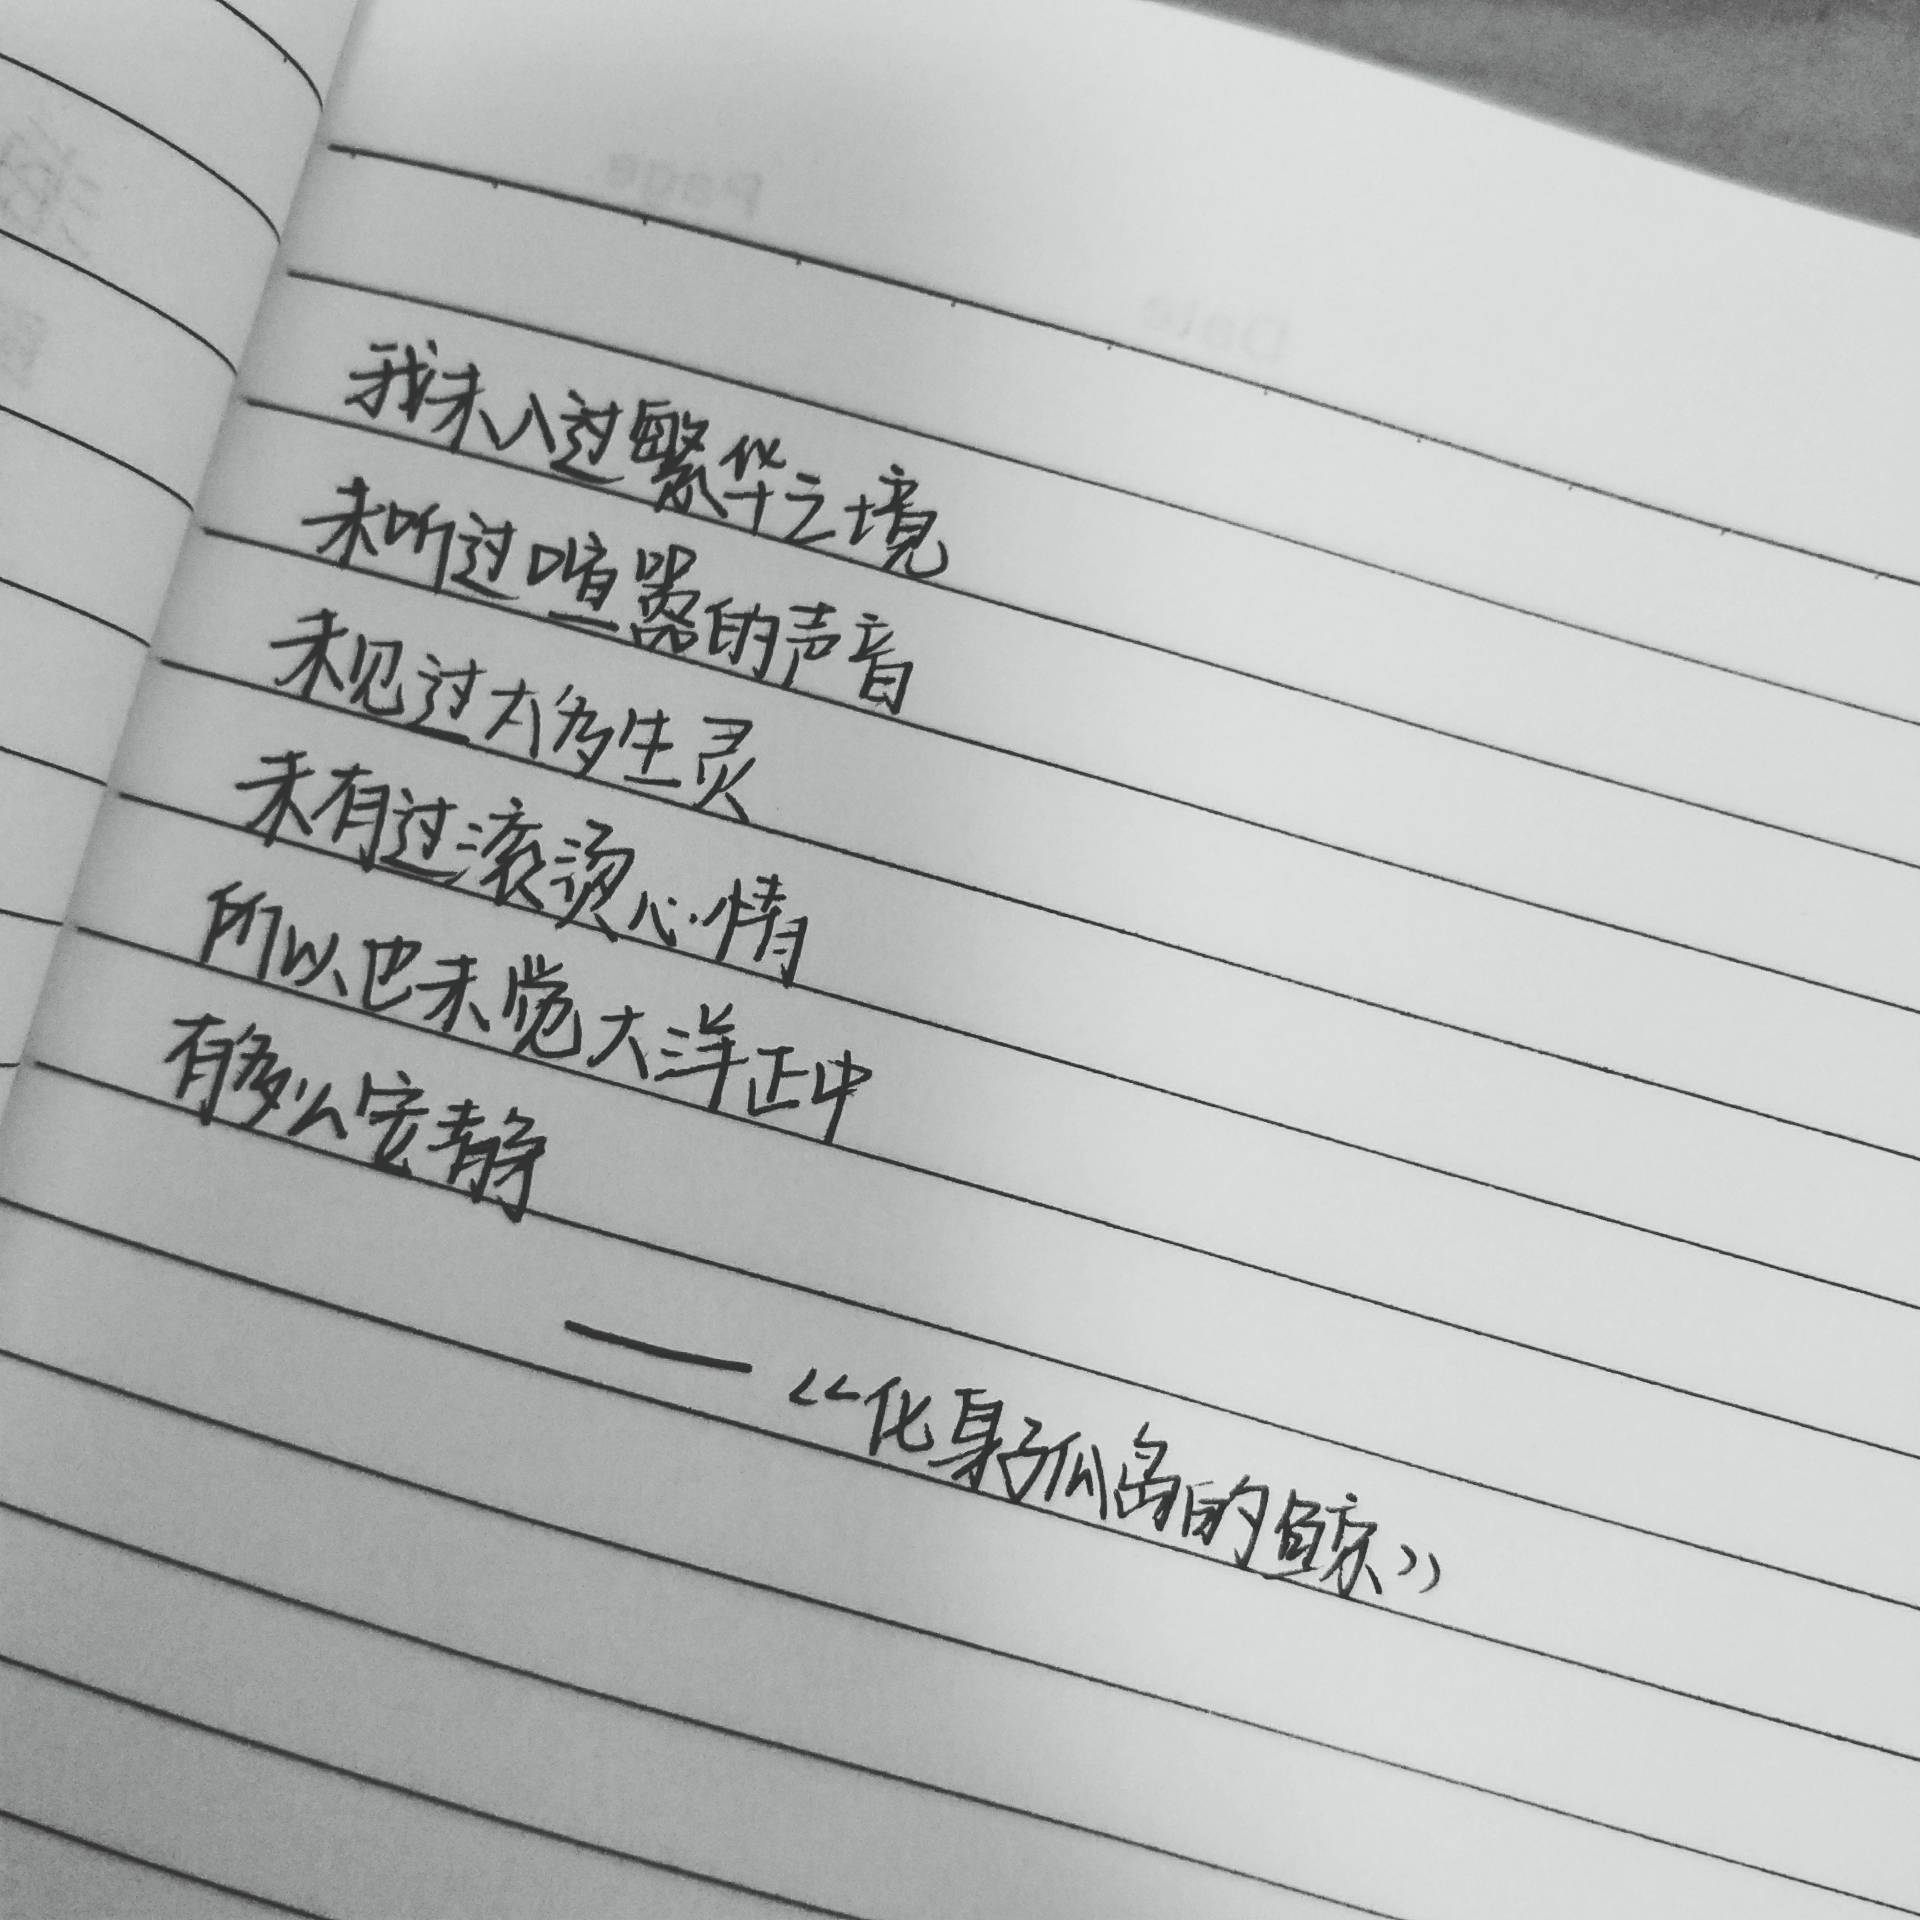 我未入过繁华之境
未听过喧嚣的声音
未见过太多生灵
未有过滚烫心情
所以也未觉大洋正中
有多么安静
——《化身孤岛的鲸》